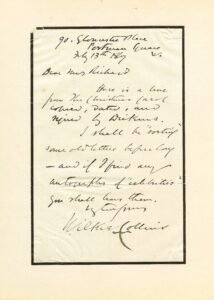 90. Gloucester Place
Portman Square
July 13th 1867
Dear Mrs Pritchard
Here is a line
from the Christmas Carol
copied, dated, and
signed by Dickens.
I shall be "sorting"
some old letters before long
— and if I find any
autographs of "celebrities"
you shall have them.
Yrs
Wilkie Collins